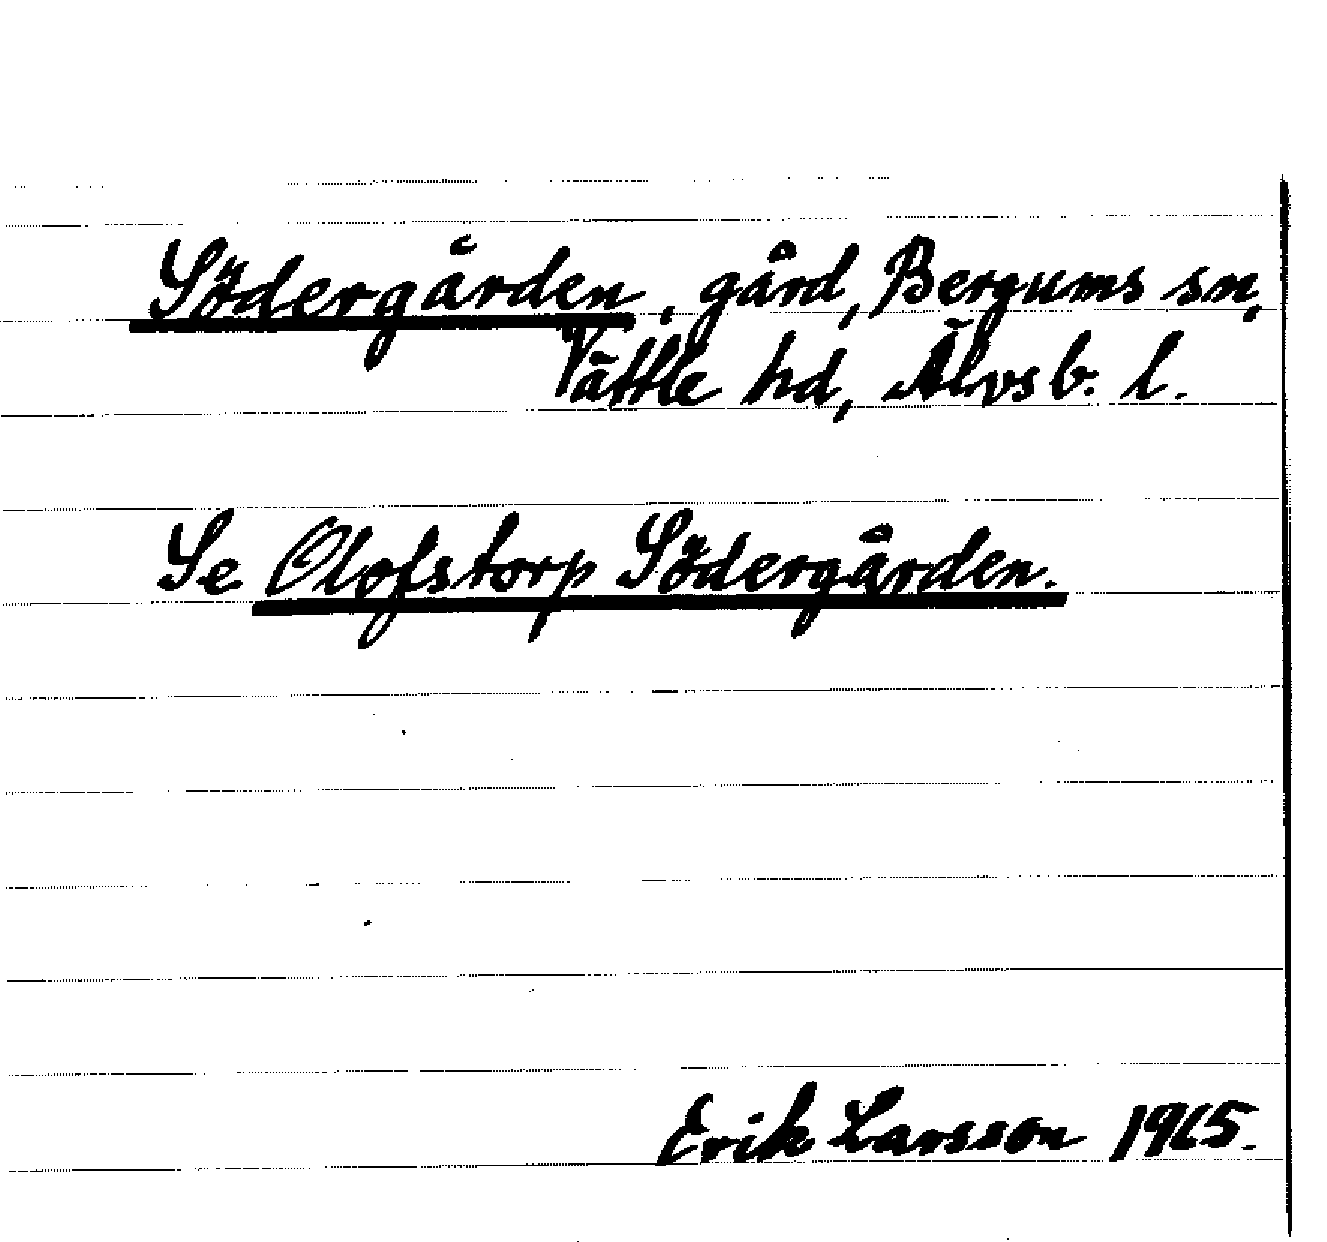 Södergården, gård, Bergums sn,
Vättle hd, Älvsb. l.
Se Olofstorp Södergården.
Erik Larsson 1965.